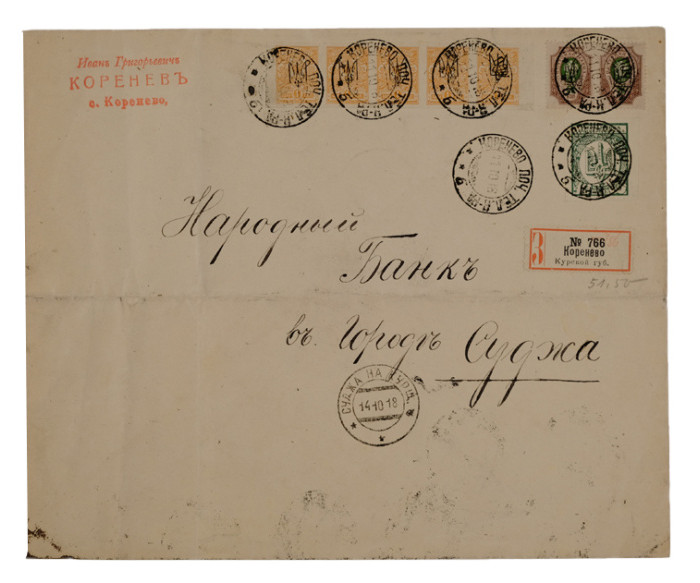 Иванъ Григорьевичъ
КОРЕНЕВЪ
с. Коренево,
КОРЕНЕВО ПОЧ. ТЕЛ. К-РА
КОРЕНЕВО ПОЧ. ТЕЛ. К-РА
КОРЕНЕВО ПОЧ. ТЕЛ. К-РА
КОРЕНЕВО ПОЧ. ТЕЛ. К-РА
КОРЕНЕВО ПОЧ. ТЕЛ. К-РА
КОРЕНЕВО ПОЧ. ТЕЛ. К-РА
Народный
Банкъ
З
№ 766
Коренево
Курской губ.
51,50
въ Городъ Суджа
СУДЖА НА КУРЩ.
14·10·18